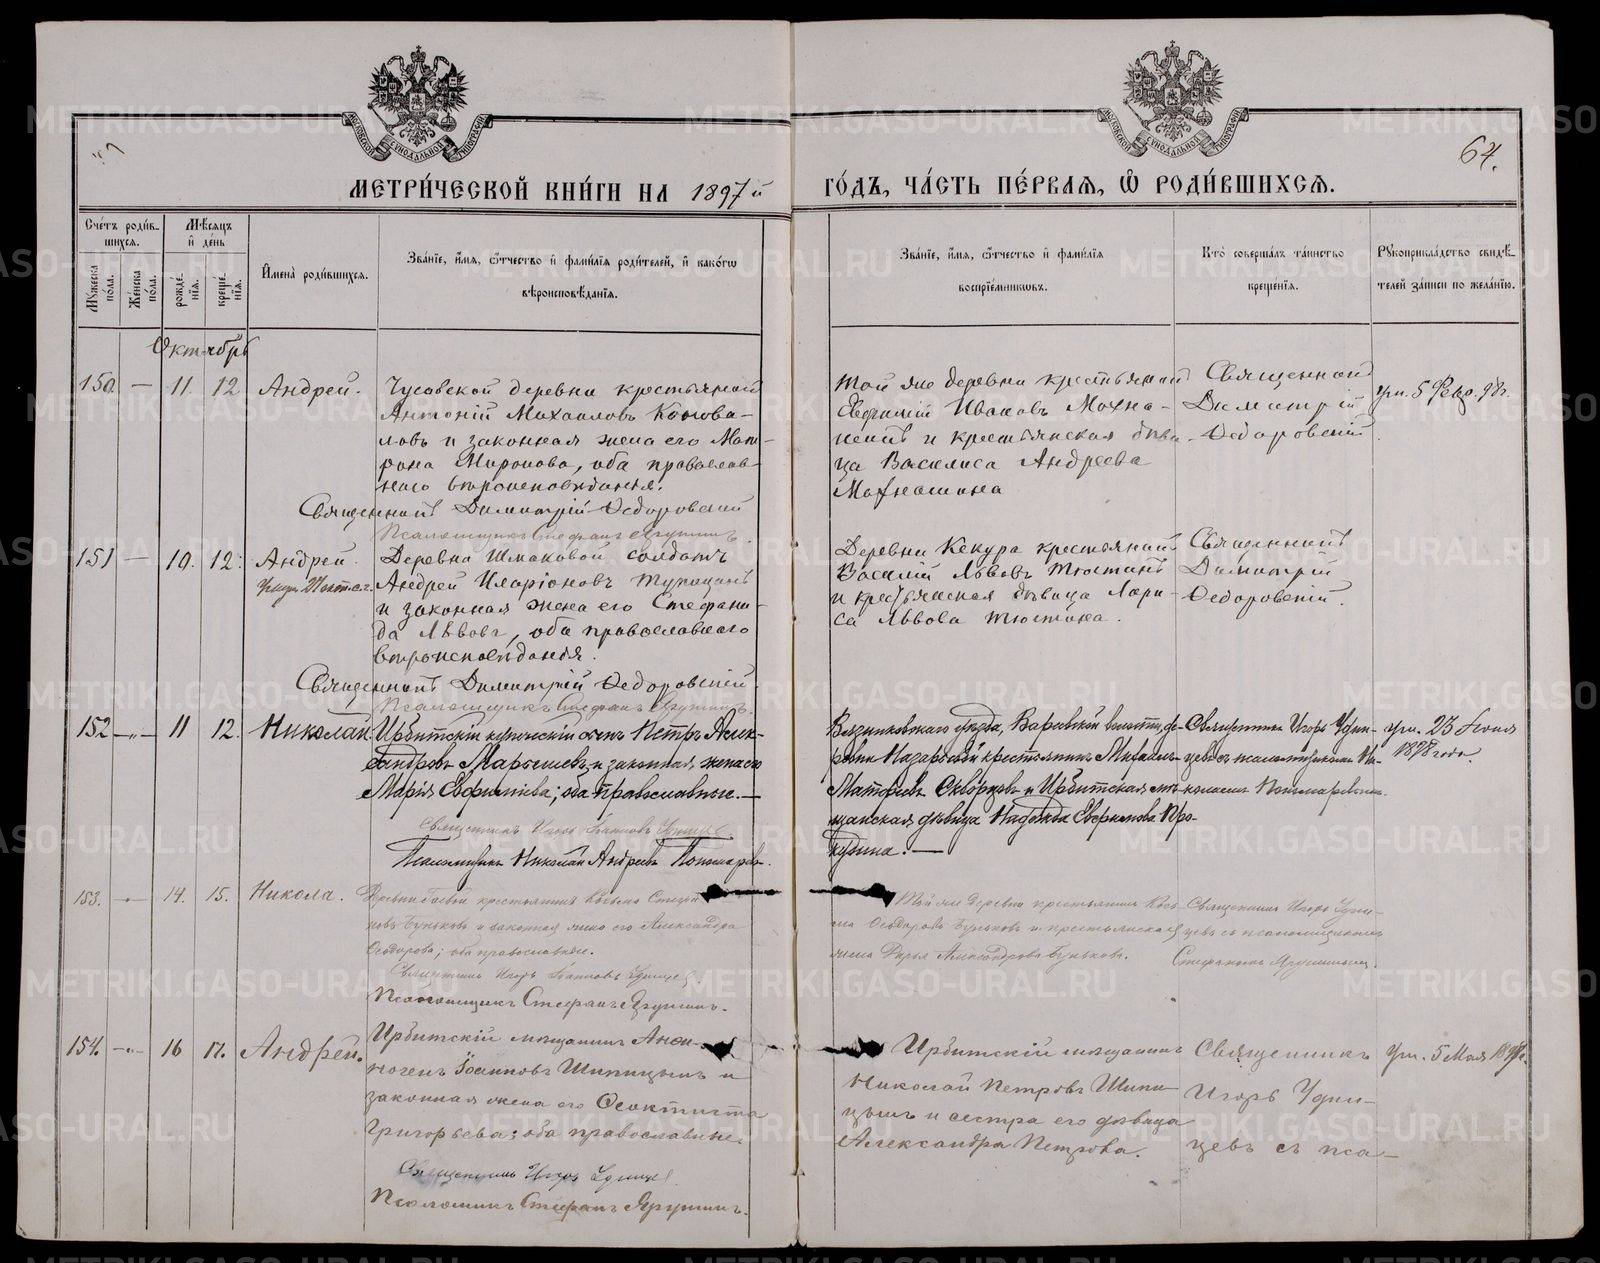 МЕТРИ́ЧЕСКОЙ КНИ́ГИ НА 1897 й
ГО́ДЪ, ЧА́СТЬ ПЕ́РВАЯ, Ѽ РОДИ́ВШИХСЯ.
64.
Сче́тъ роди́в-
шихся.
Мѣ́сяцъ
и҆ де́нь
Мꙋ́жеска по́ла.
Же́нска по́ла.
рожде́-
нїя.
креще́-
нїя.
И҆мена̀ роди́вшихся.
Зва́нїе, и҆́мя, ѻ҆́тчество и҆ фами́лїя роди́телей, и҆ како́гѡ
вѣроисповѣ́данїя.
Зва́нїе, и҆́мя, ѻ҆́тчество и҆ фами́лїя
воспрїе́мникѡвъ.
Кто̀ соверша́лъ та́инство
креще́нїя.
Рꙋкоприкла́дство свидѣ́-
телей за́писи по жела́нїю.
Октябрь
150. — 11. 12. Андрей.
Чусовской деревни крестьянинъ
Антоній Михаиловъ
и законная жена его Мат-
рона Миронова, оба православ-
наго вѣроисповѣданія.
Священникъ Димитрій Ѳедоровскій
Псаломщикъ Стефанъ Ярушинъ.
Той же деревни крестьянинъ
Евфимій Ивановъ Махне-
и крестьянская дѣви-
ца Василиса Андреева
Махнешина
Священникъ
Димитрій
Ѳедоровскій
ум. 5 Февр. 98г.
151 — 10. 12. Андрей.
Деревни Шмаковой солдатъ
Андрей Иларіоновъ
и законная жена его Стефани-
да Львова, оба православнаго
вѣроисповѣданія.
Священникъ Димитрій Ѳедоровскій.
Псаломщикъ Стефанъ Ярушинъ.
Деревни Кекура крестьянинъ
Василій Львовъ Тюстинъ
и крестьянская дѣвица Лари-
са Львова Тюстина.
Священникъ
Димитрій
Ѳедоровскій.
152 —„— 11 12. Николай
Ирбитскій купеческій сынъ Петръ Алек-
сандровъ Марышевъ и законная жена его
Марія Евфиміева; оба православные. —
Священникъ Игорь Іоанновъ Удинцевъ.
Псаломщикъ Николай Андреевъ Пономаревъ.
Вязниковскаго уѣзда, Барской волости, де-
ревни Назаровой крестьянинъ Михаилъ
Матѳіевъ Скворцовъ и Ирбитская мѣ-
щанская дѣвица Надежда Евфимова Про-
кудина. —
Священникъ Игорь Удин-
цевъ съ псаломщикомъ Ни-
колаемъ Пономаревымъ.
ум. 23 Іюня
1898 года.
153. —„— 14. 15. Никола.
крестьянинъ Косьма
Буньковъ и законная жена его Александра
Ѳеодорова; оба православные.
Священникъ Игорь Іоанновъ Удинцевъ
Псаломщикъ Стефанъ Ярушинъ.
Той же деревни крестьянинъ
Ѳеодоровъ Буньковъ и крестьянская
жена Дарья Александрова Бунькова.
Священникъ Игорь Удин-
цевъ съ псаломщикомъ
Стефаномъ Ярушинымъ.
154. —„— 16 17. Андрей.
Ирбитскій мѣщанинъ
Іоанновъ Шипицынъ и
законная жена его Ѳеоктиста
Григорьева; оба православные.
Священникъ Игорь Удинцевъ.
Псаломщикъ Стефанъ Ярушинъ.
Ирбитскій мѣщанинъ
Николай Петровъ Шипи-
цынъ и сестра его дѣвица
Александра Петрова.
Священникъ
Игорь Удин-
цевъ съ пса-
Ум. 5 Мая 1898г.
METRIKI.GASO-URAL.RU